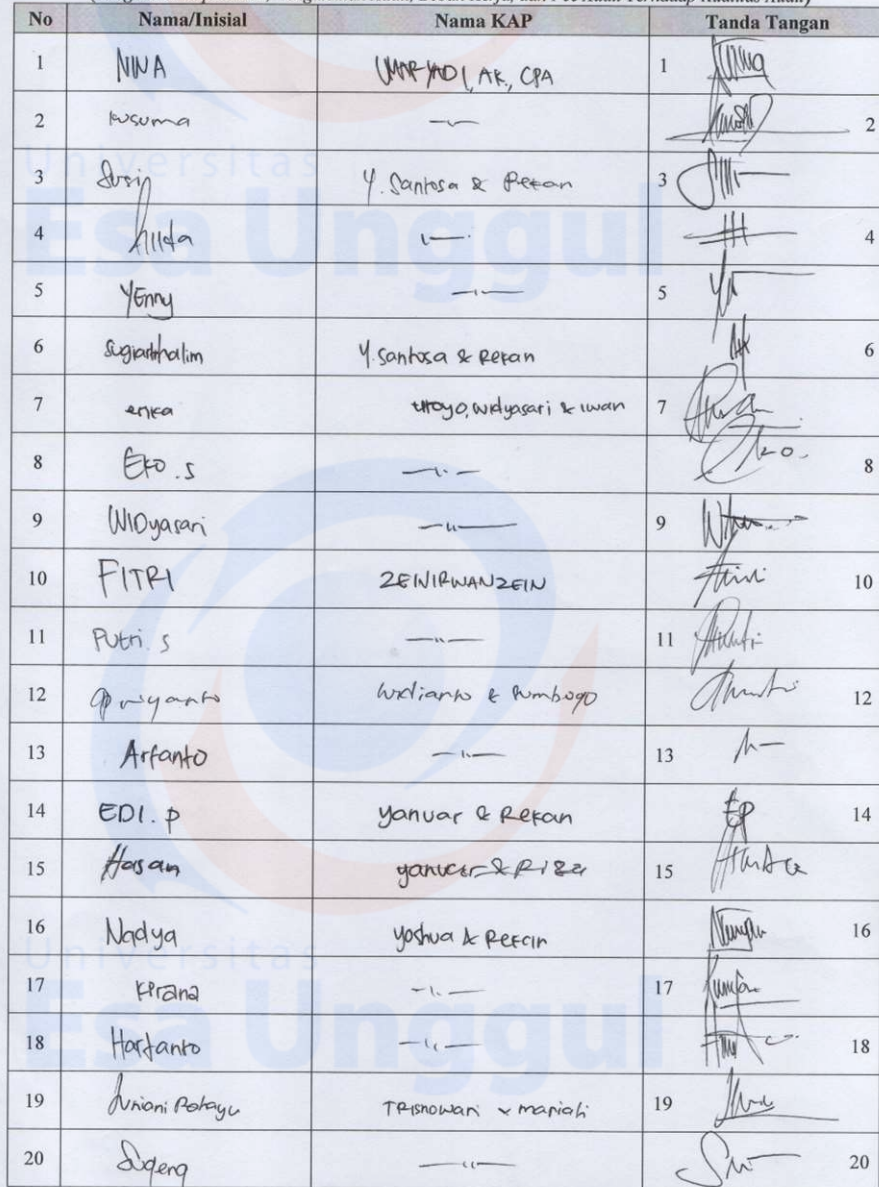 No Nama/Inisial Nama KAP Tanda Tangan
1 NINA UMARYADI, AK., CPA 1
2 Kusuma —"— 2
3 Susin Y. Santosa & Rekan 3
4 —"— 4
5 YEnny —"— 5
6 Sugiartohalim Y. Santosa & Rekan 6
7 erika utoyo, widyasari & iwan 7
8 Eko .S —"— 8
9 WIDyasari —"— 9
10 FITRI ZEINIRWANZEIN 10
11 Putri. S —"— 11
12 12
13 Arfanto —"— 13
14 EDI. P yanuar & Rekan EP 14
15 Hasan yanuar & Riza 15
16 Nadya yoshua & Rekan 16
17 Kirana —"— 17
18 Hartanto —"— 18
19 19
20 Sugeng —"— 20
Universitas
Esa Unggul
Universitas
Esa Unggul